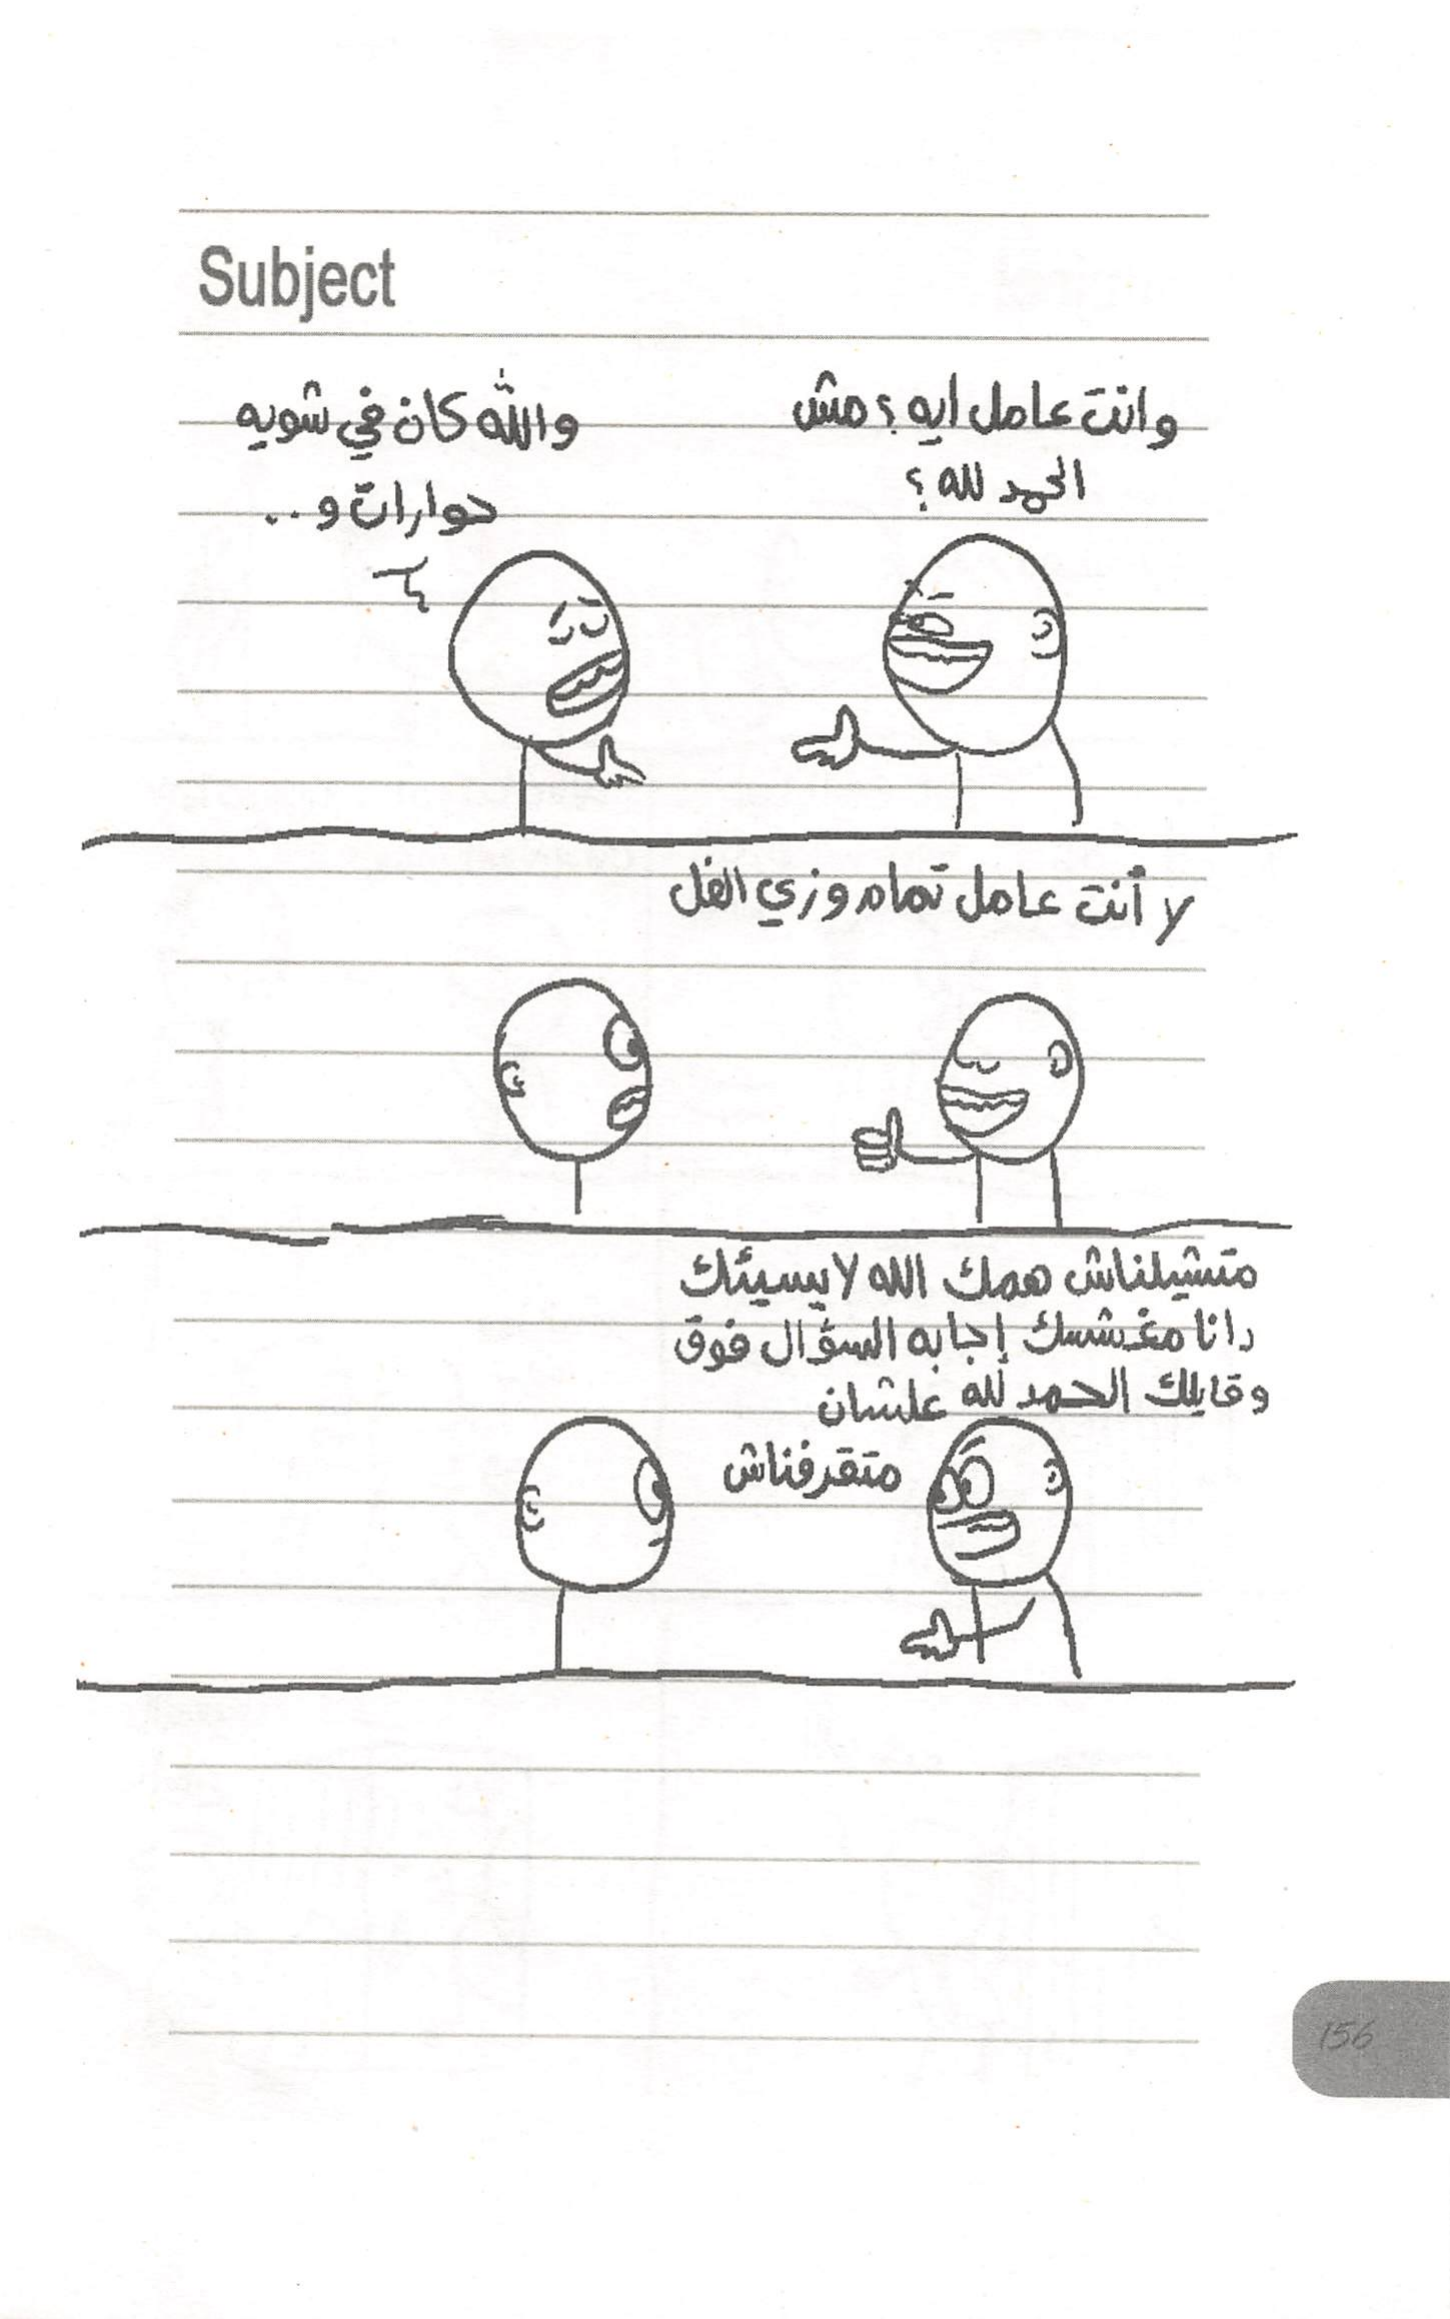 Subject
وانت عامل ايه؟ مش
الحمد لله؟
والله كان في شويه
حوارات و..
لا أنت عامل تمام وزي الفل
متشيلناش همك الله لا يسيئك
دانا مغششك إجابه السؤال فوق
وقايلك الحمد لله علشان
متقرفناش
156